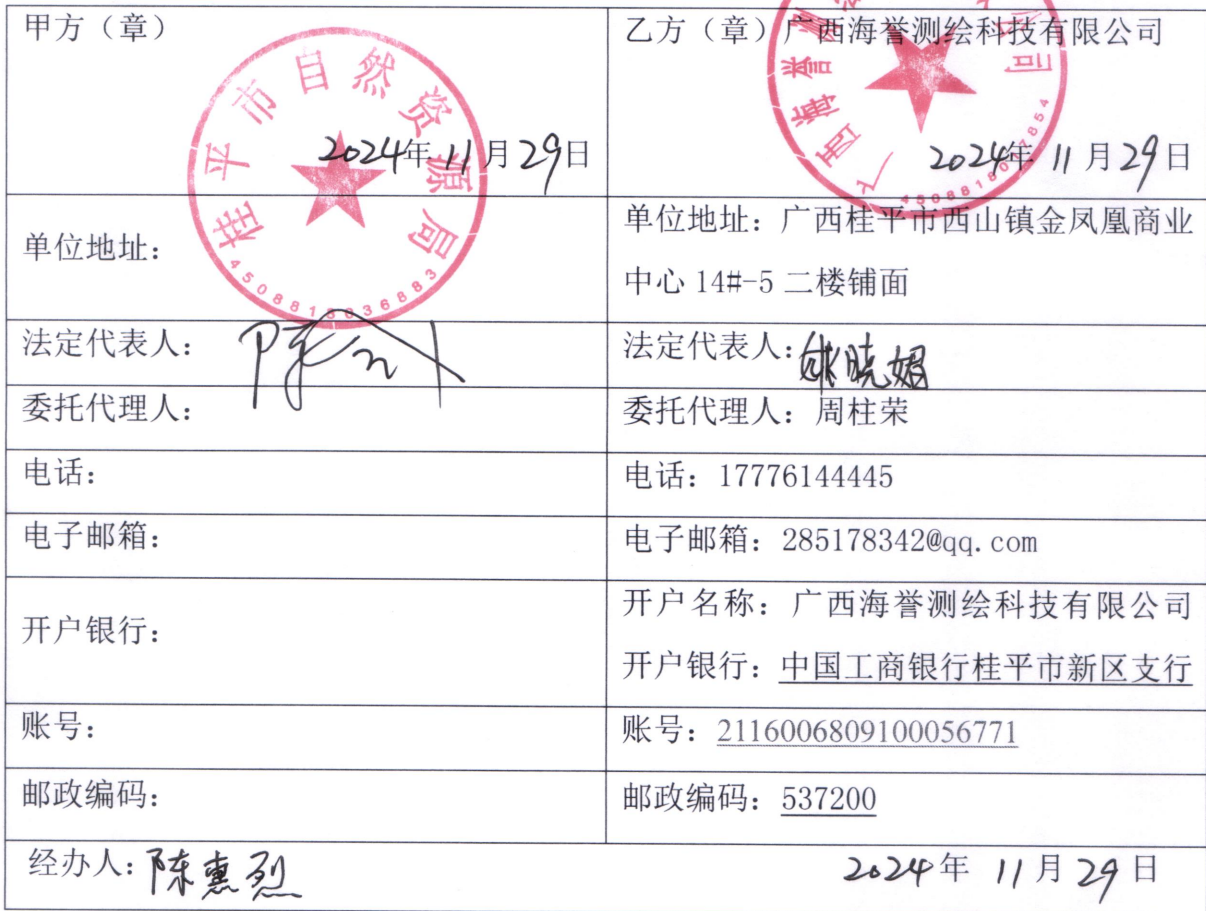 甲方（章）
桂平市自然资源局
2024年11月29日
4508810036883
乙方（章）广西海誉测绘科技有限公司
2024年11月29日
单位地址：
单位地址：广西桂平市西山镇金凤凰商业
中心14#-5二楼铺面
法定代表人：
法定代表人：
委托代理人：
委托代理人：周柱荣
电话：
电话：17776144445
电子邮箱：
电子邮箱：285178342@qq.com
开户银行：
开户名称：广西海誉测绘科技有限公司
开户银行：中国工商银行桂平市新区支行
账号：
账号：2116006809100056771
邮政编码：
邮政编码：537200
经办人：陈惠烈
2024年11月29日